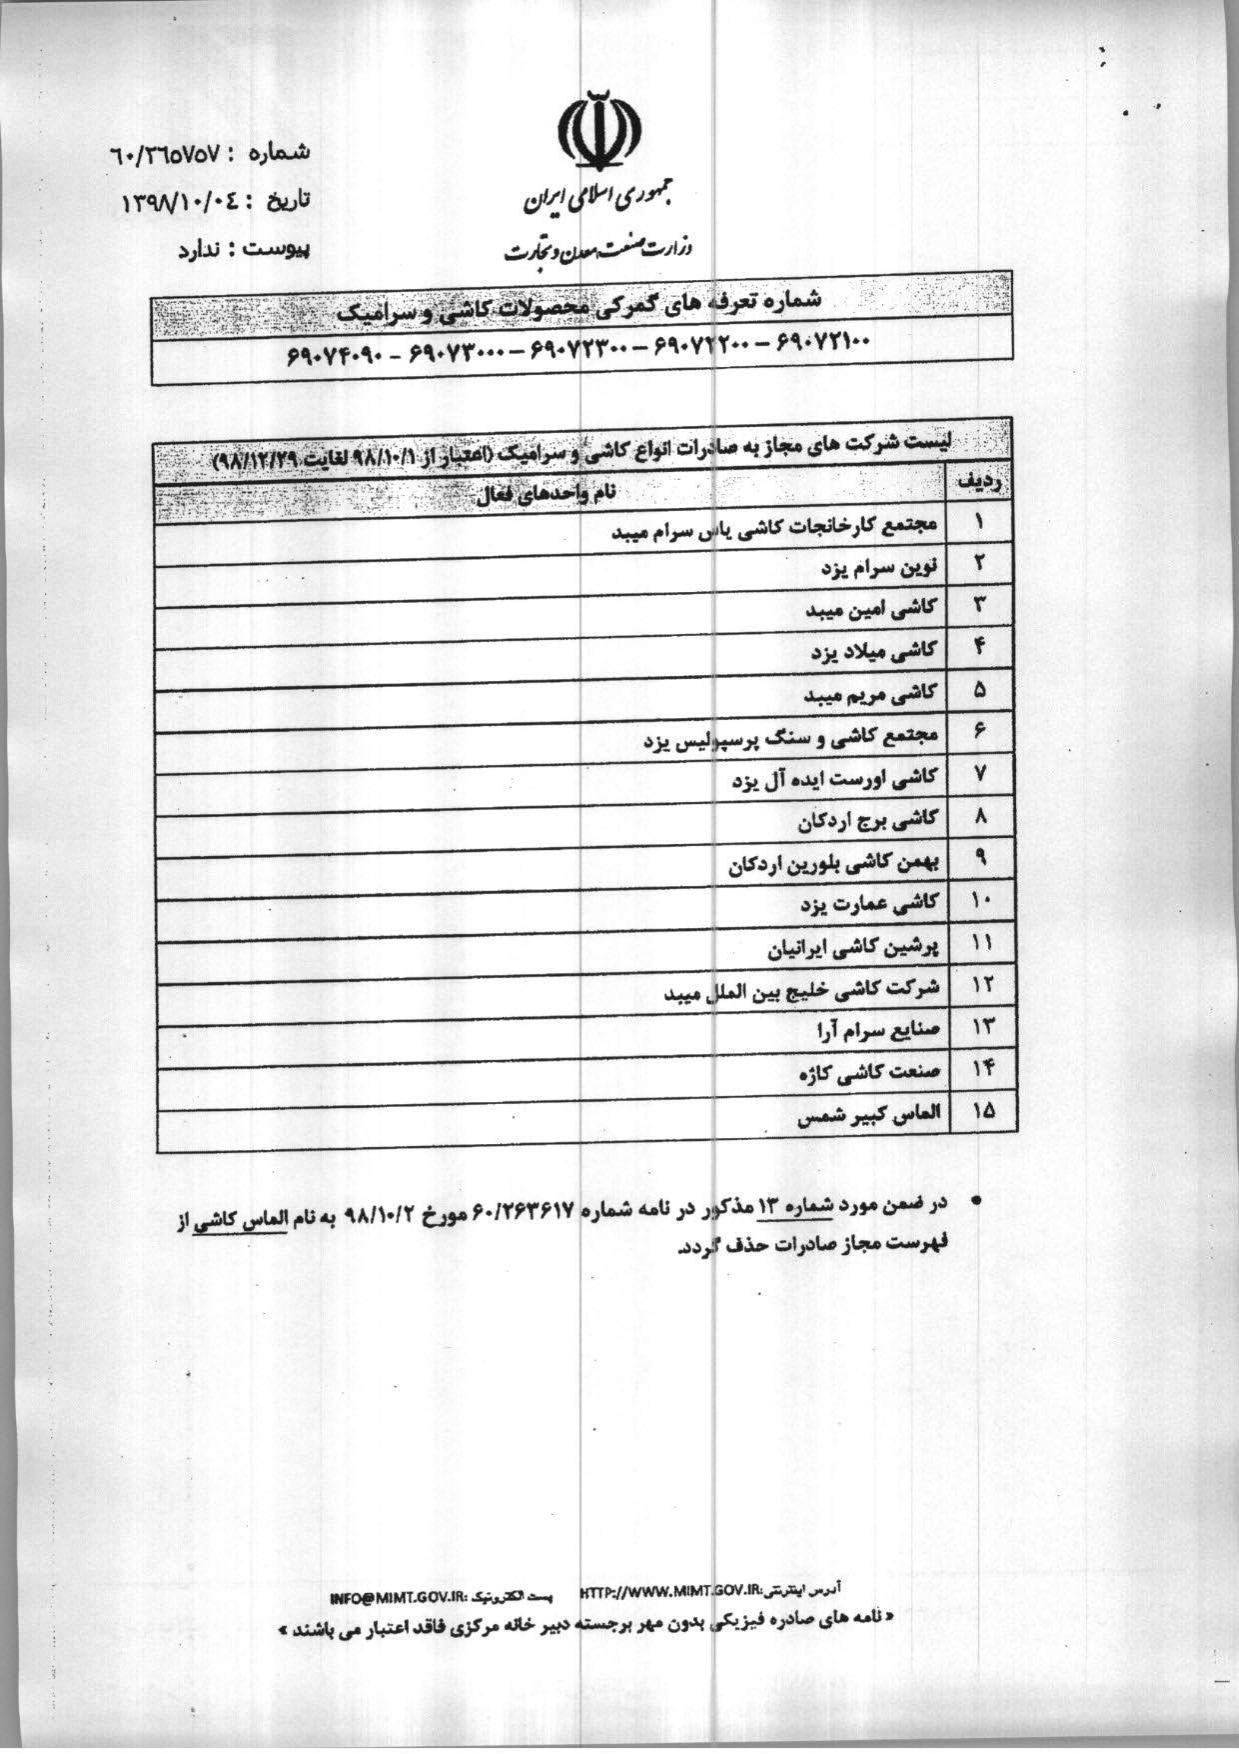 جمهوری اسلامی ایران
وزارت صنعت معدن و تجارت
شماره : ٦٠/٢٦٥٧٥٧
تاریخ : ١٣٩٨/١٠/٠٤
پیوست : ندارد
شماره تعرفه های گمرکی محصولات کاشی و سرامیک
۶۹۰۷۲۱۰۰ – ۶۹۰۷۲۲۰۰ – ۶۹۰۷۲۳۰۰ – ۶۹۰۷۳۰۰۰ – ۶۹۰۷۴۰۹۰
لیست شرکت های مجاز به صادرات انواع کاشی و سرامیک (اعتبار از ۹۸/۱۰/۱ لغایت ۹۸/۱۲/۲۹)
ردیف نام واحدهای فعال
۱ مجتمع کارخانجات کاشی یاس سرام میبد
۲ نوین سرام یزد
۳ کاشی امین میبد
۴ کاشی میلاد یزد
۵ کاشی مریم میبد
۶ مجتمع کاشی و سنگ پرسپولیس یزد
۷ کاشی اورست ایده آل یزد
۸ کاشی برج اردکان
۹ بهمن کاشی بلورین اردکان
۱۰ کاشی عمارت یزد
۱۱ پرشین کاشی ایرانیان
۱۲ شرکت کاشی خلیج بین الملل میبد
۱۳ صنایع سرام آرا
۱۴ صنعت کاشی کاژه
۱۵ الماس کبیر شمس
• در ضمن مورد شماره ۱۳ مذکور در نامه شماره ۶۰/۲۶۳۶۱۷ مورخ ۹۸/۱۰/۲ به نام الماس کاشی از
فهرست مجاز صادرات حذف گردد.
آدرس اینترنتی:HTTP://WWW.MIMT.GOV.IR پست الکترونیک :INFO@MIMT.GOV.IR
« نامه های صادره فیزیکی بدون مهر برجسته دبیر خانه مرکزی فاقد اعتبار می باشند »